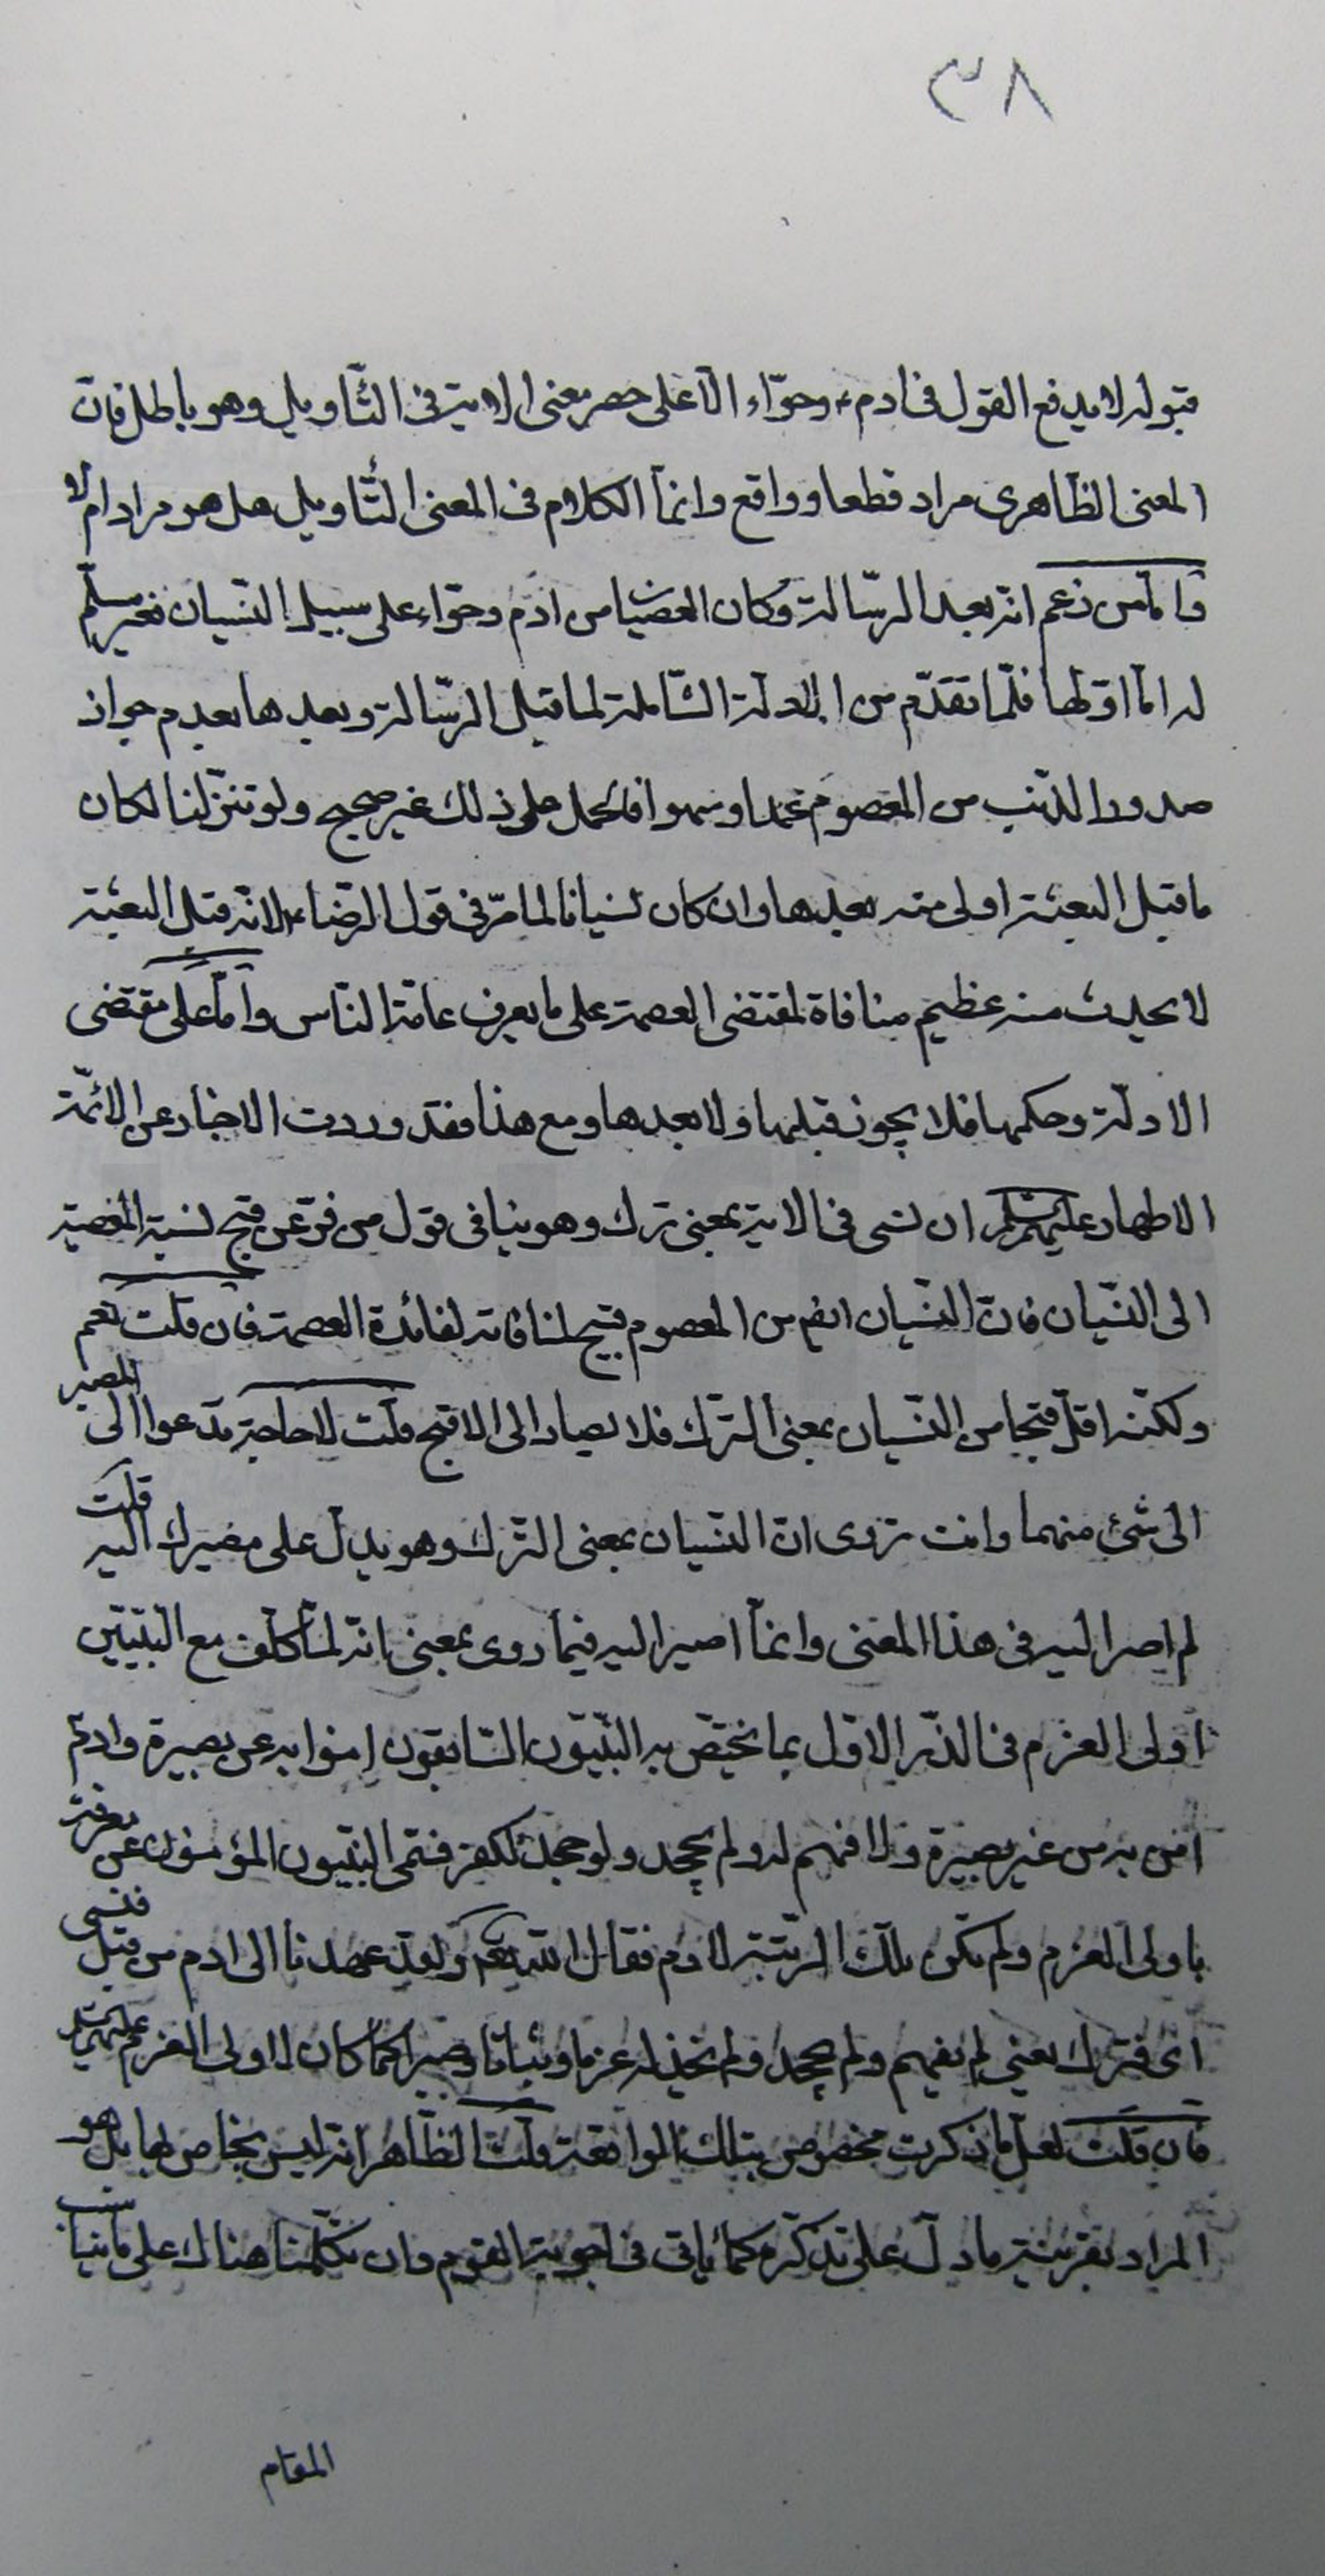 ٣٨
قبوله لا يدفع القول فى ادم ع وحوّاء الّا على حصر معنى الاية فى التّاويل وهو باطل فانّ
المعنى الظّاهرى مراد قطعا وواقع وانمّا الكلام فى المعنى التّاويل هل هو مراد ام لا
فامّا من زعم انّه بعد الرسّالة وكان العصيا من ادم وحوّاء على سبيل النّسيان فغير مسلّم
له امّا اوّلها فلمّا تقدّم من الادلّة الشّاملة لما قبل الرسّالة وبعدها بعدم جواز
صدور الذّنب من المعصوم عمدا وسهوا فالحمل على ذلك غير صحيح ولو تنزّلنا لكان
ما قبل البعثة اولى منه بعدها وان كان نسيانا لما مرّ فى قول الرضّا ع لانّه قبل البعثة
لا يحدث منه عظيم منافاة لمقتضى العصمة على ما يعرف عامّة النّاس وامّا على مقتضى
الادلّة وحكمها فلا يجوز قبلها ولا بعدها ومع هذا فقد وردت الاخبار عن الائمّة
الاطهار عليهم السلم ان نسى فى الاية بمعنى ترك وهو ينافى قول من فرّ عن قبح نسبة المعصية
الى النّسيان فانّ النّسيان ايضم من المعصوم قبيح لمنافاته لفائدة العصمة فان قلت نعم
ولكنّه اقلّ قبحا من النّسيان بمعنى الترّك فلا يصار الى الاقبح قلت لا حاجة تدعوا الى المصير
الى شئ منهما وانت تروى انّ النّسيان بمعنى الترّك وهو يدلّ على مصيرك اليه قلت
لم اصر اليه فى هذا المعنى وانمّا اصير اليه فيما روى بمعنى انّه لمّا كلّف مع النّبيّين
اولى العزم فى الذّر الاوّل بما يختصّ به النّبيّون السّابقون امنوا به عن بصيرة وادم ع
امن به من غير بصيرة ولا فهم له ولم يجحد ولو جحد لكفر فسمّى النّبيّون المؤمنون عن معرفة
باولى العزم ولم تكن تلك الرّتبة لادم فقال اللّه تعم ولقد عهدنا الى ادم من قبل فنسى
اى فترك يعنى لم يفهم ولم يجحد ولم نجد له عزما وثباتا وصبرا كما كان لاولى العزم عليهم السلم
فان قلت لعلّ ما ذكرت مخصوص بتلك الواقعة قلت الظّاهر انّه ليس بخاص لها بل هو
المراد بقرينة ما دلّ على تذكّره كما ياتى فى اجوبة القوم وان تكلّمنا هناك على ما يناسب
المقام